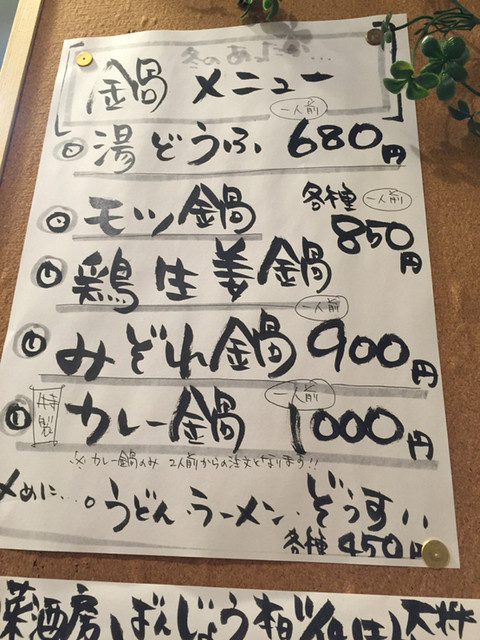 冬のあったか…
鍋メニュー
湯どうふ 一人前 680円
モツ鍋 各種 一人前 850円
鶏生姜鍋
みぞれ鍋 一人前 900円
特製 カレー鍋 一人前 1000円
※カレー鍋のみ 2人前からの注文となります!!
〆めに…。うどん ラーメン ぞうすい
各種 450円
菜酒房 ばんじょう